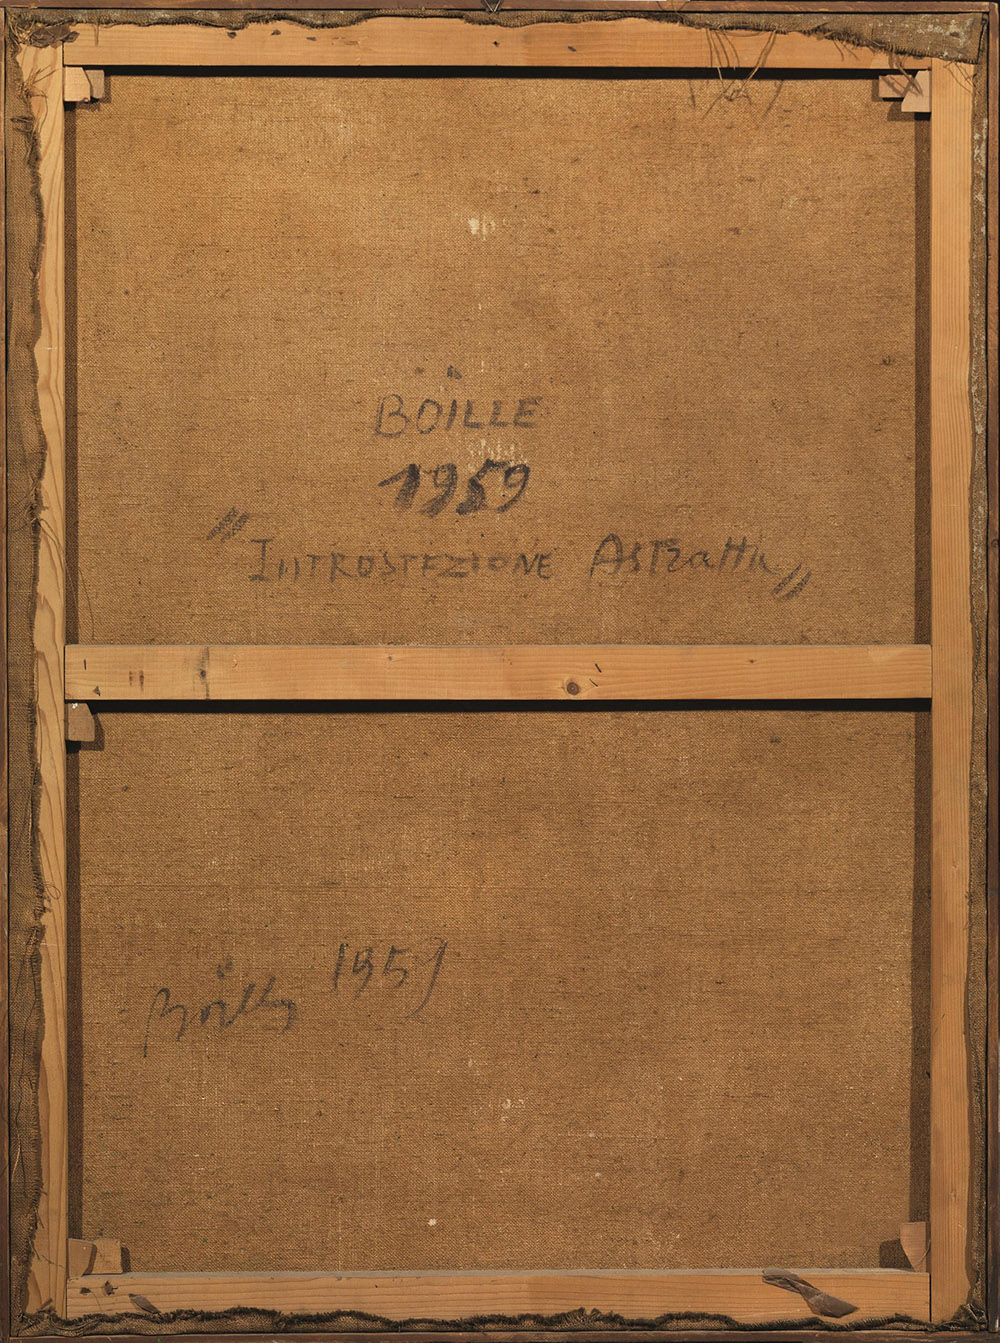 BOÏLLE
1959
"INTROSPEZIONE AStratta"
Boïlle 1959